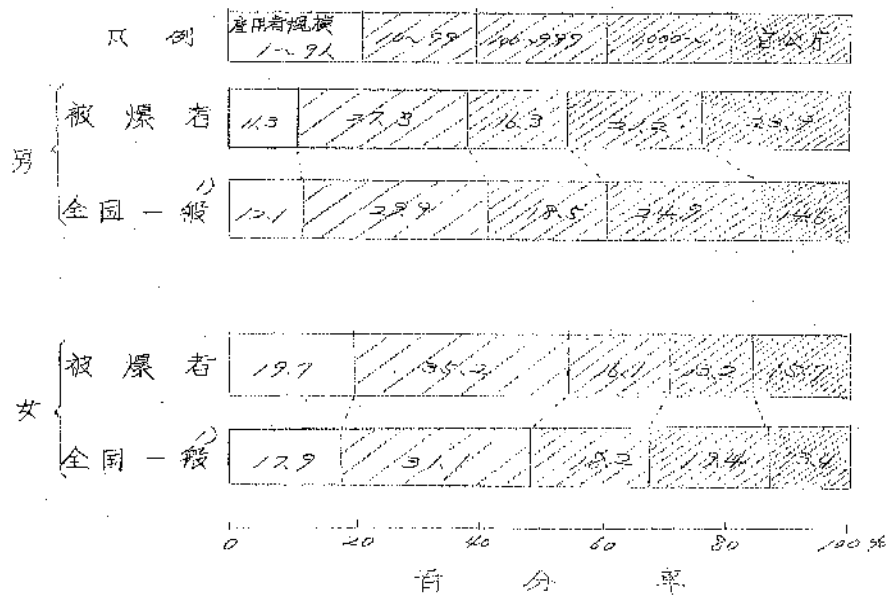 凡例 雇用者規模 1～9人 10～99 100～999 1000～ 官公庁
男
被爆者 11.3 27.3 16.3 21.2 23.9
全国一般 1) 12.1 29.9 18.5 24.9 14.6
女
被爆者 19.7 35.2 16.1 15.7
全国一般 1) 17.9 31.1 18.2 19.4 13.4
0 20 40 60 80 100 %
百分率